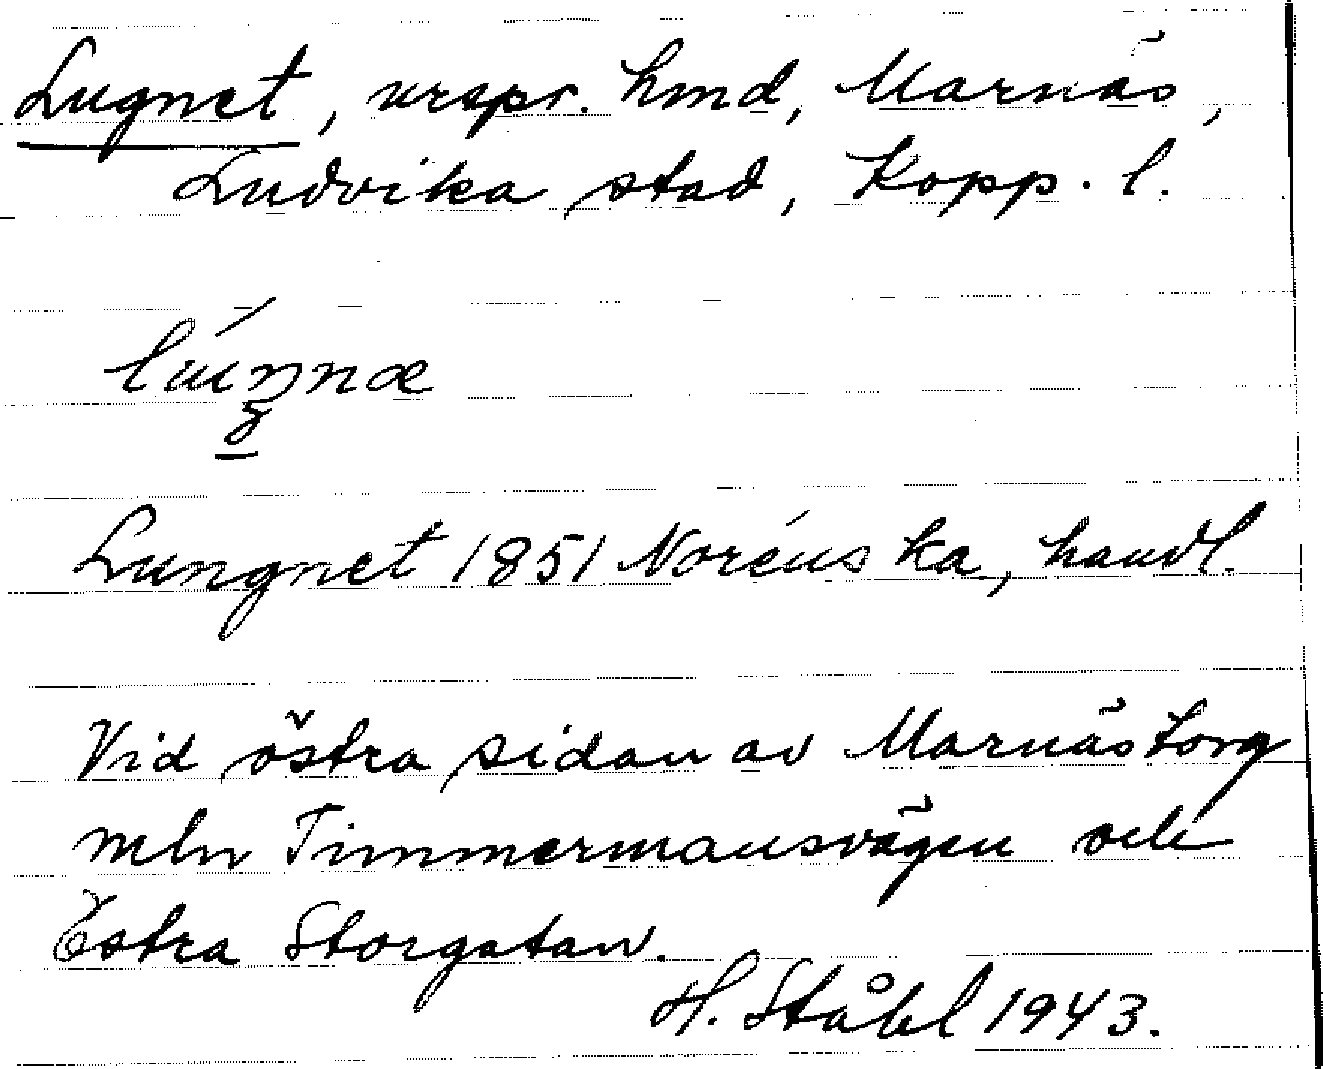 Lugnet, urspr. hmd, Marnäs,
Ludvika stad, Kopp. l.
Lungnet 1851 Noréns ka, handl.
Vid östra sidan av Marnästorg
mln Timmermansvägen och
Östra Storgatan.
H. Ståhl 1943.